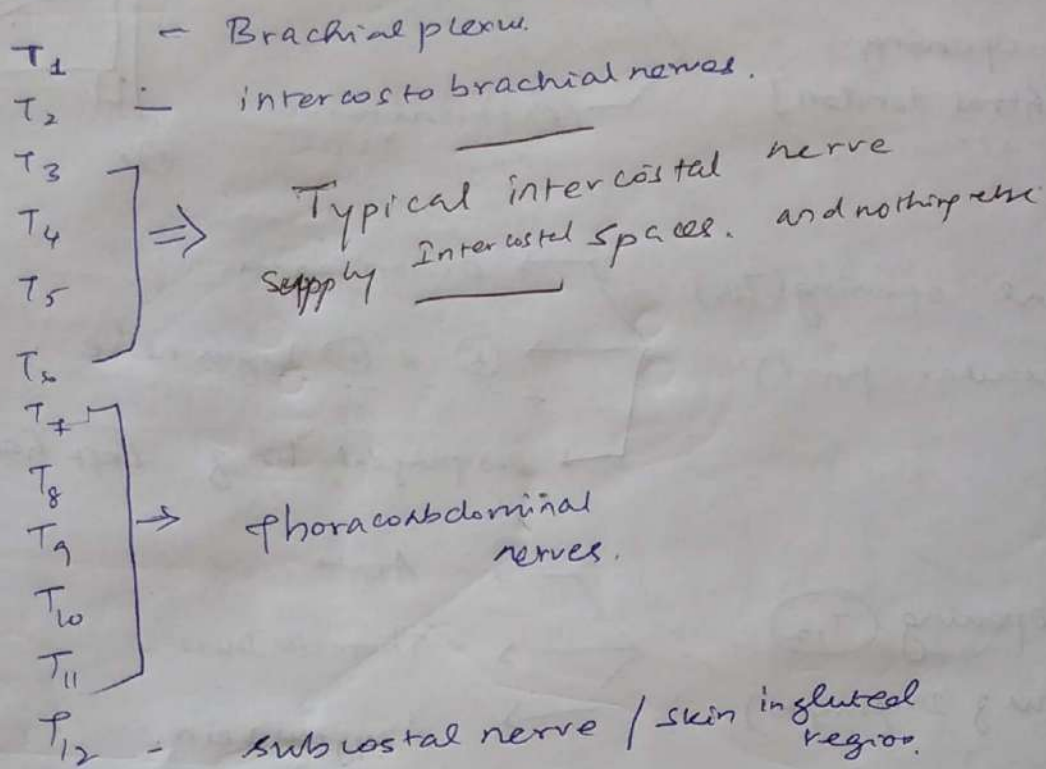 T1 - Brachial plexus.
T2 - intercostobrachial nerves.
T3
T4
T5
T6
⇒ Typical intercostal nerve
supply Intercostal spaces. and nothing else
T7
T8
T9
T10
T11
→ Thoracoabdominal
nerves.
T12 - subcostal nerve / skin in gluteal
region.